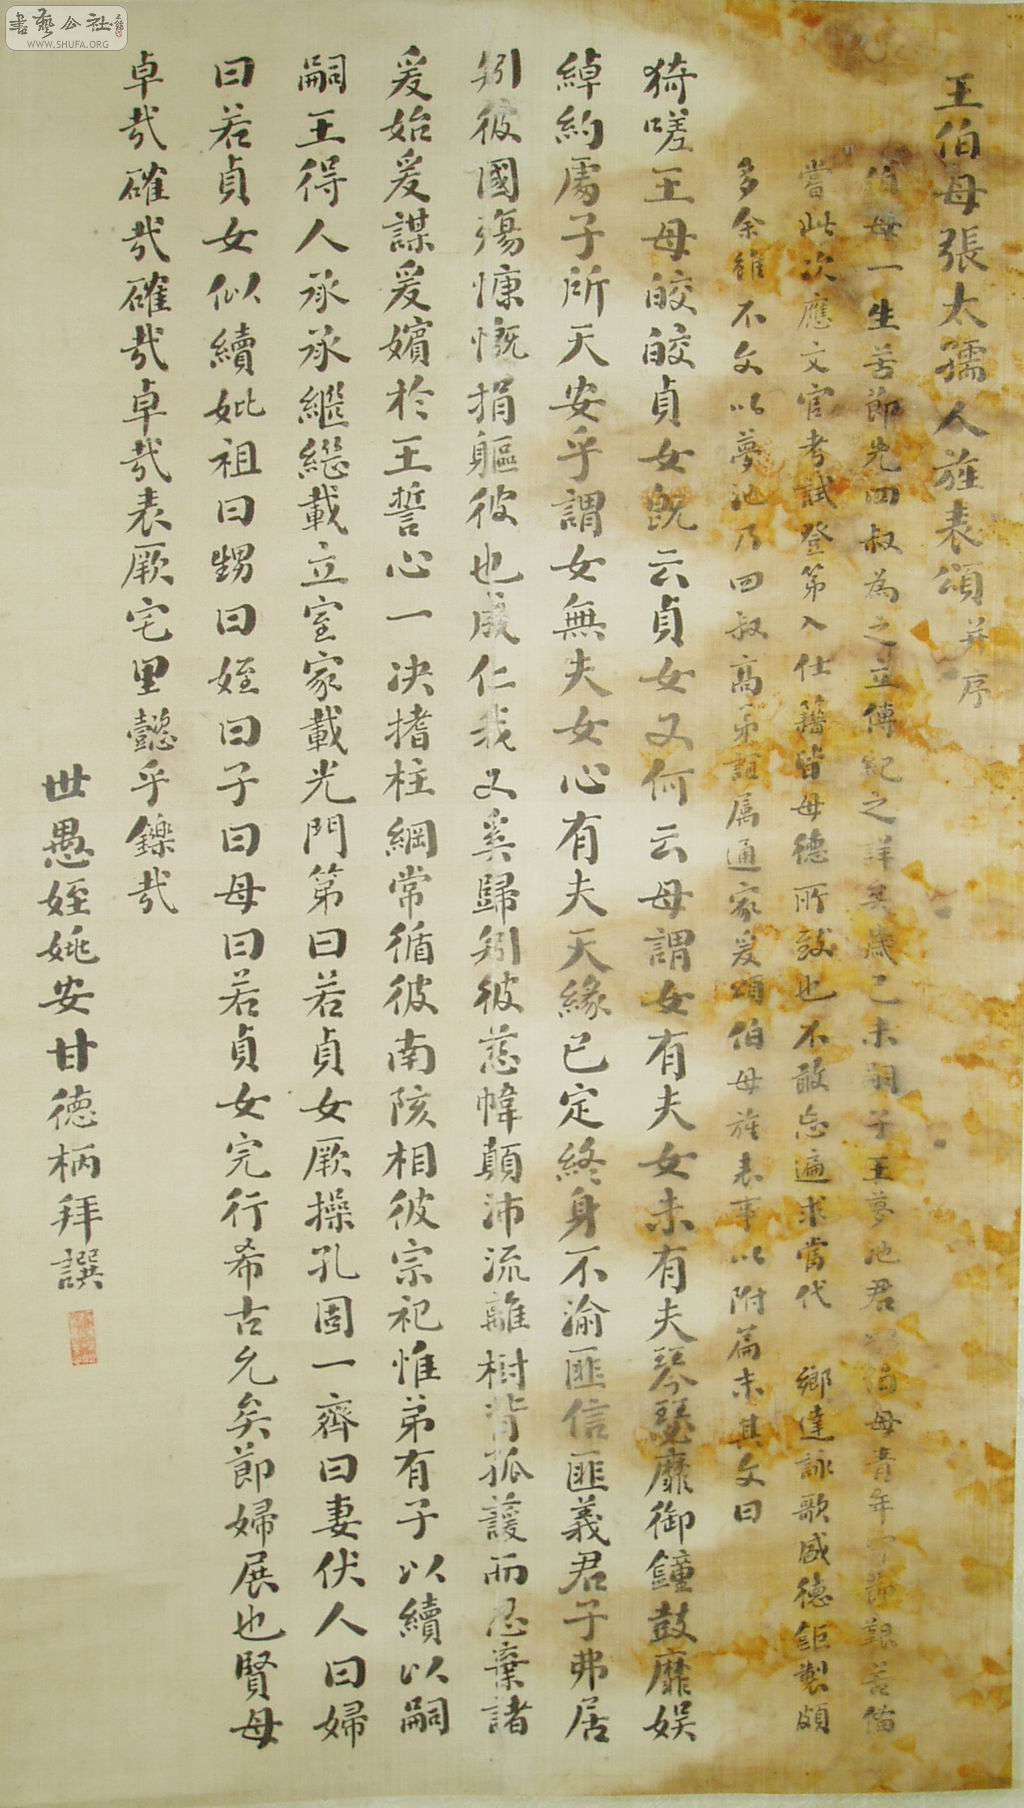 王伯母張太孺人旌表頌并序
伯母一生苦節先四叔為之立傳紀之詳矣歲己未嗣子王夢池君以伯母青年守節艱苦備
當此次應文官考試登第入仕籍皆母德所致也不敢忘遍求當代 鄉達詠歌盛德鉅製頗
多余雖不文以夢池乃四叔高弟誼屬通家爰頌伯母旌表事以附篇末其文曰
猗嗟王母皎皎貞女既云貞女又何云母謂女有夫女未有夫琴瑟靡御鐘鼓靡娛
綽約處子所天安乎謂女無夫女心有夫天緣已定終身不渝匪信匪義君子弗居
矧彼國殤慷慨捐軀彼也成仁我又奚歸矧彼慈幃顛沛流離樹背孤護而忍棄諸
爰始爰謀爰嬪於王誓心一決搘柱綱常循彼南陔相彼宗祀惟弟有子以續以嗣
嗣王得人承承繼繼載立室家載光門第曰若貞女厥操孔固一齊曰妻伏人曰婦
曰若貞女似續妣祖曰甥曰姪曰子曰母曰若貞女完行希古允矣節婦展也賢母
卓哉確哉確哉卓哉表厥宅里懿乎鑠哉
世愚姪姚安甘德柄拜譔
書藝公社
WWW.SHUFA.ORG